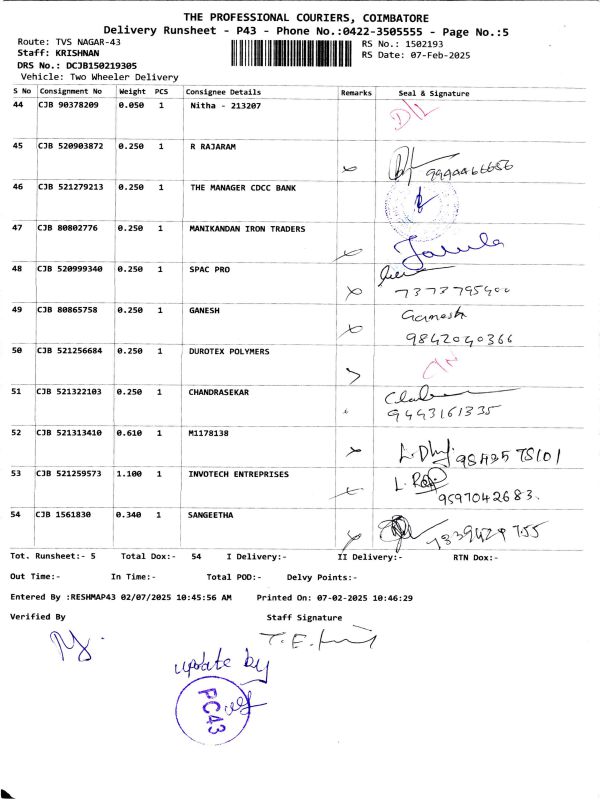 THE PROFESSIONAL COURIERS, COIMBATORE
Delivery Runsheet - P43 - Phone No.:0422-3505555 - Page No.:5
Route: TVS NAGAR-43 RS No.: 1502193
Staff: KRISHNAN RS Date: 07-Feb-2025
DRS No.: DCJB150219305
Vehicle: Two Wheeler Delivery
S No Consignment No Weight PCS Consignee Details Remarks Seal & Signature
44 CJB 90378209 0.050 1 Nitha - 213207 D/L
45 CJB 520903872 0.250 1 R RAJARAM
46 CJB 521279213 0.250 1 THE MANAGER CDCC BANK
47 CJB 80802776 0.250 1 MANIKANDAN IRON TRADERS
48 CJB 520999340 0.250 1 SPAC PRO 7373795400
49 CJB 80865758 0.250 1 GANESH Ganesh
9842040366
50 CJB 521256684 0.250 1 DUROTEX POLYMERS
51 CJB 521322103 0.250 1 CHANDRASEKAR
9443161335
52 CJB 521313410 0.610 1 M1178138 98425 78101
53 CJB 521259573 1.100 1 INVOTECH ENTREPRISES
9597042683.
54 CJB 1561830 0.340 1 SANGEETHA
Tot. Runsheet:- 5 Total Dox:- 54 I Delivery:- II Delivery:- RTN Dox:-
Out Time:- In Time:- Total POD:- Delvy Points:-
Entered By :RESHMAP43 02/07/2025 10:45:56 AM Printed On: 07-02-2025 10:46:29
Verified By Staff Signature
update by
PC43